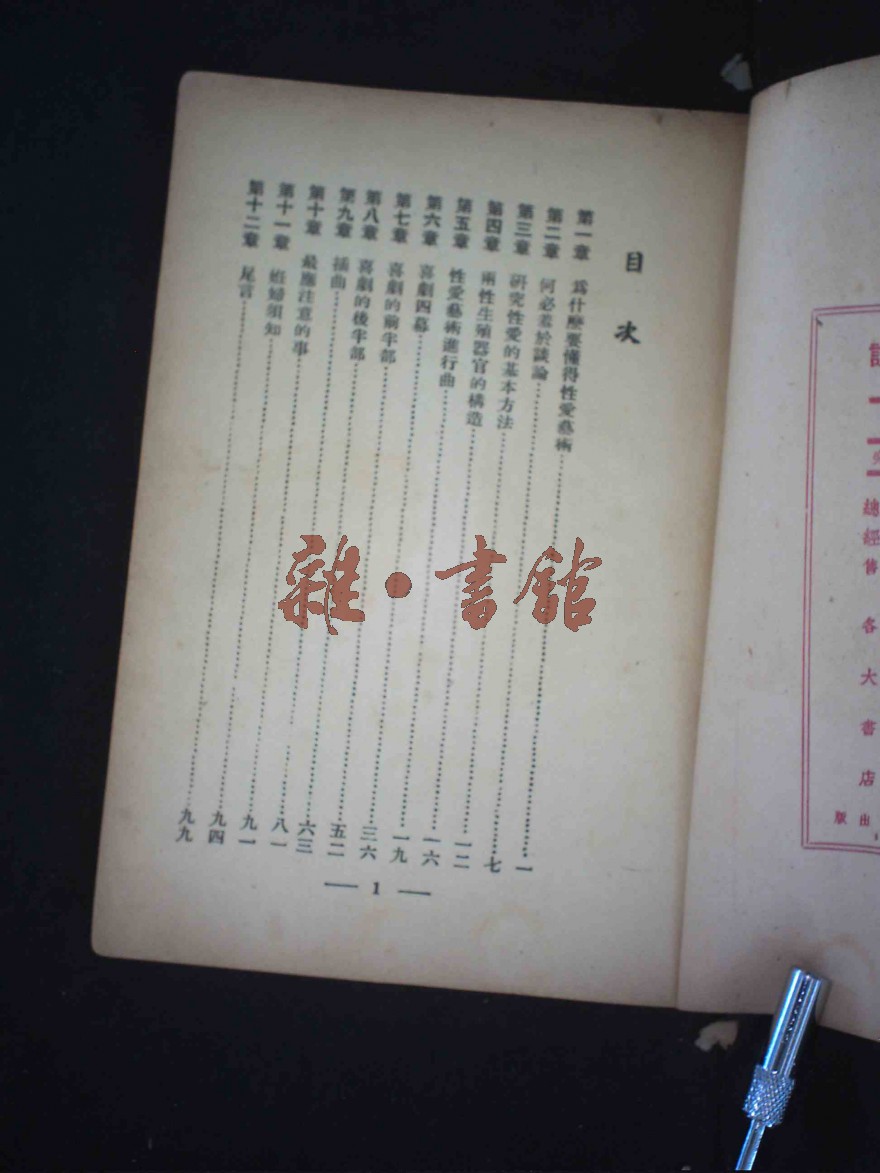 目次
第一章 爲什麼要懂得性愛藝術……一
第二章 何必羞於談論……七
第三章 研究性愛的基本方法……一二
第四章 兩性生殖器官的構造……一六
第五章 性愛藝術進行曲……一九
第六章 喜劇四幕……三六
第七章 喜劇的前半部……五二
第八章 喜劇的後半部……六三
第九章 插曲……八一
第十章 最應注意的事……九一
第十一章 妊婦須知……九四
第十二章 尾言……九九
— 1 —
總經售 各大書店
出版
雜·書館